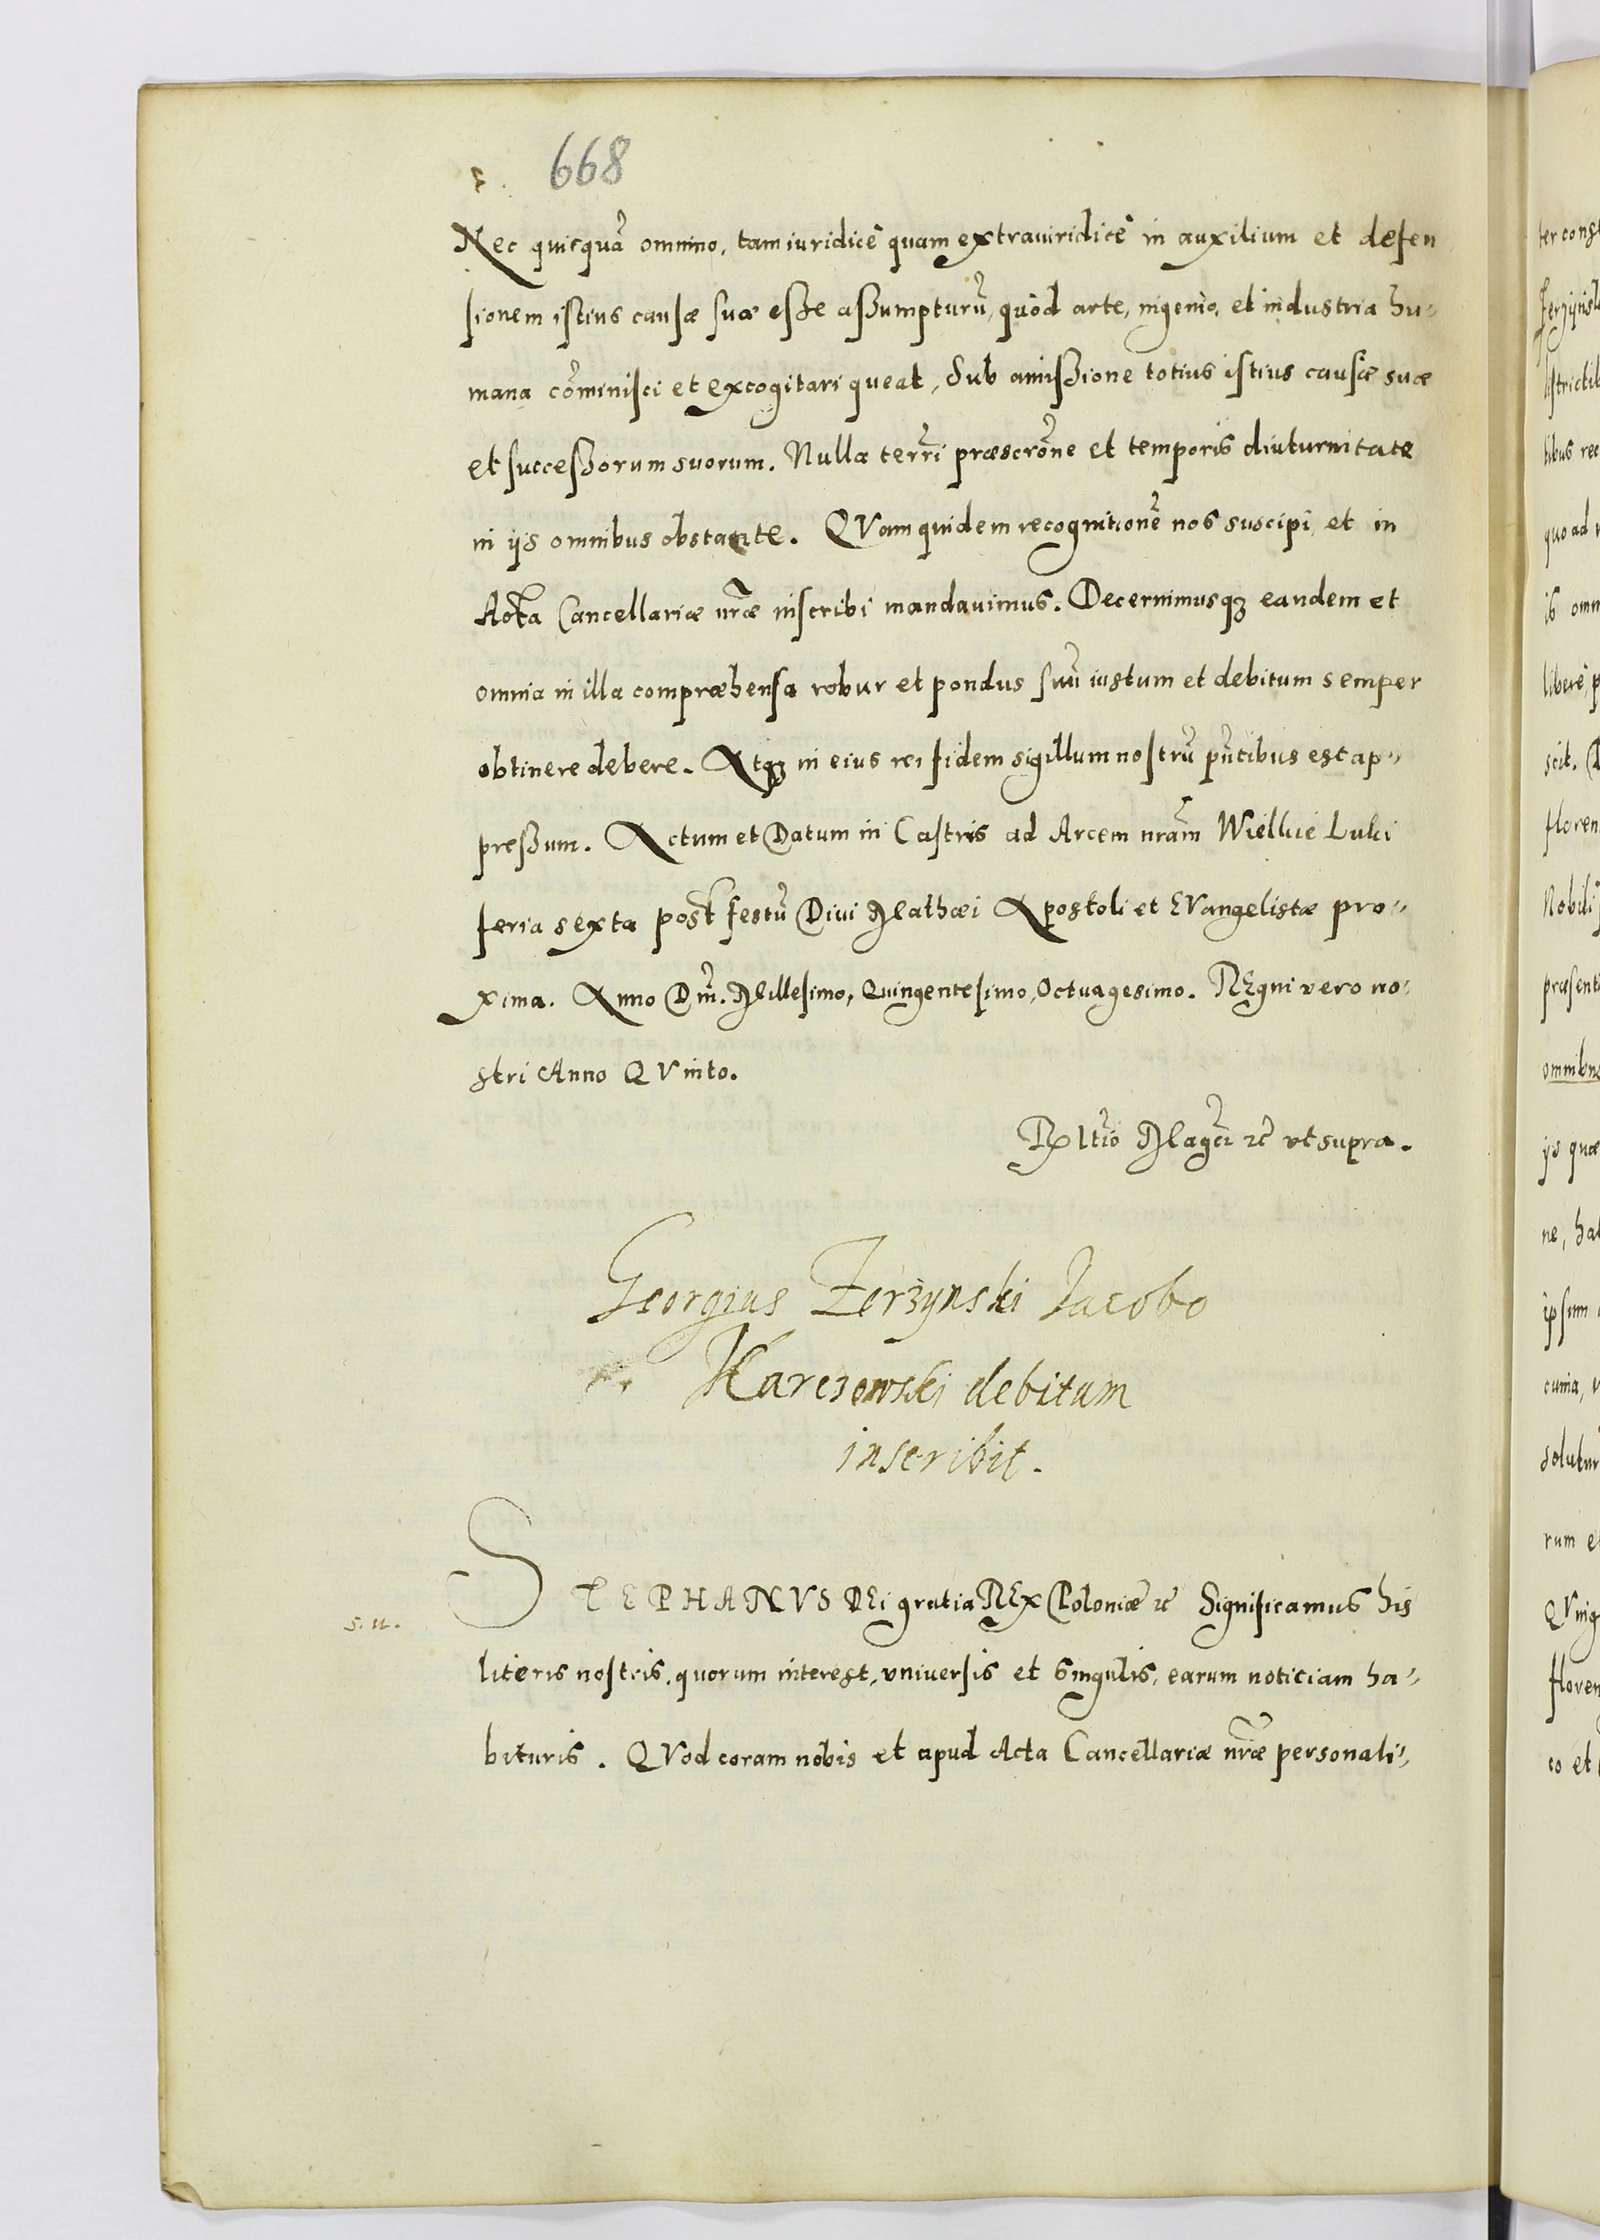 668
Nec quicquã omnino, tam iuridicè quam extraiuridicè in auxilium et defen
sionem istius causæ suæ esse assumpturũ, quòd arte, ingenio, et industria hu-
mana cõminisci et excogitari queat, Sub amissione totius istius causæ suæ
et successorum suorum. Nulla terrĩ præscrõne et temporis diuturnitate
in ijs omnibus obstante. QVam quidem recognitionẽ nos suscipi et in
Acta Cancellariæ nr̃æ inscribi mandauimus. Decernimusq3 eandem et
omnia in illa compræhensa robur et pondus suũ iustum et debitum semper
obtinere debere. Atq3 in eius rei fidem sigillum nostrũ pñtibus est ap-
pressum. Actum et Datum in Castris ad Arcem nr̃am Wielkie Luki
feria sexta post festũ Diui Mathæi Apostoli et EVangelistæ pro-
xima. Anno Dnĩ. Millesimo, Quingentesimo, Octuagesimo. REgni vero no-
stri Anno QVinto.
Rltĩo Magcĩ etc̃ vt supra.
Georgius Zerzynski Iacobo
Karczowski debitum
inscribit.
STEPHANVS DEi gratia REx Poloniæ etc̃ Significamus his
s. u.
literis nostris, quorum interest, vniuersis et singulis, earum noticiam ha-
bituris. QVod coram nobis et apud Acta Cancellariæ nr̃æ personali-